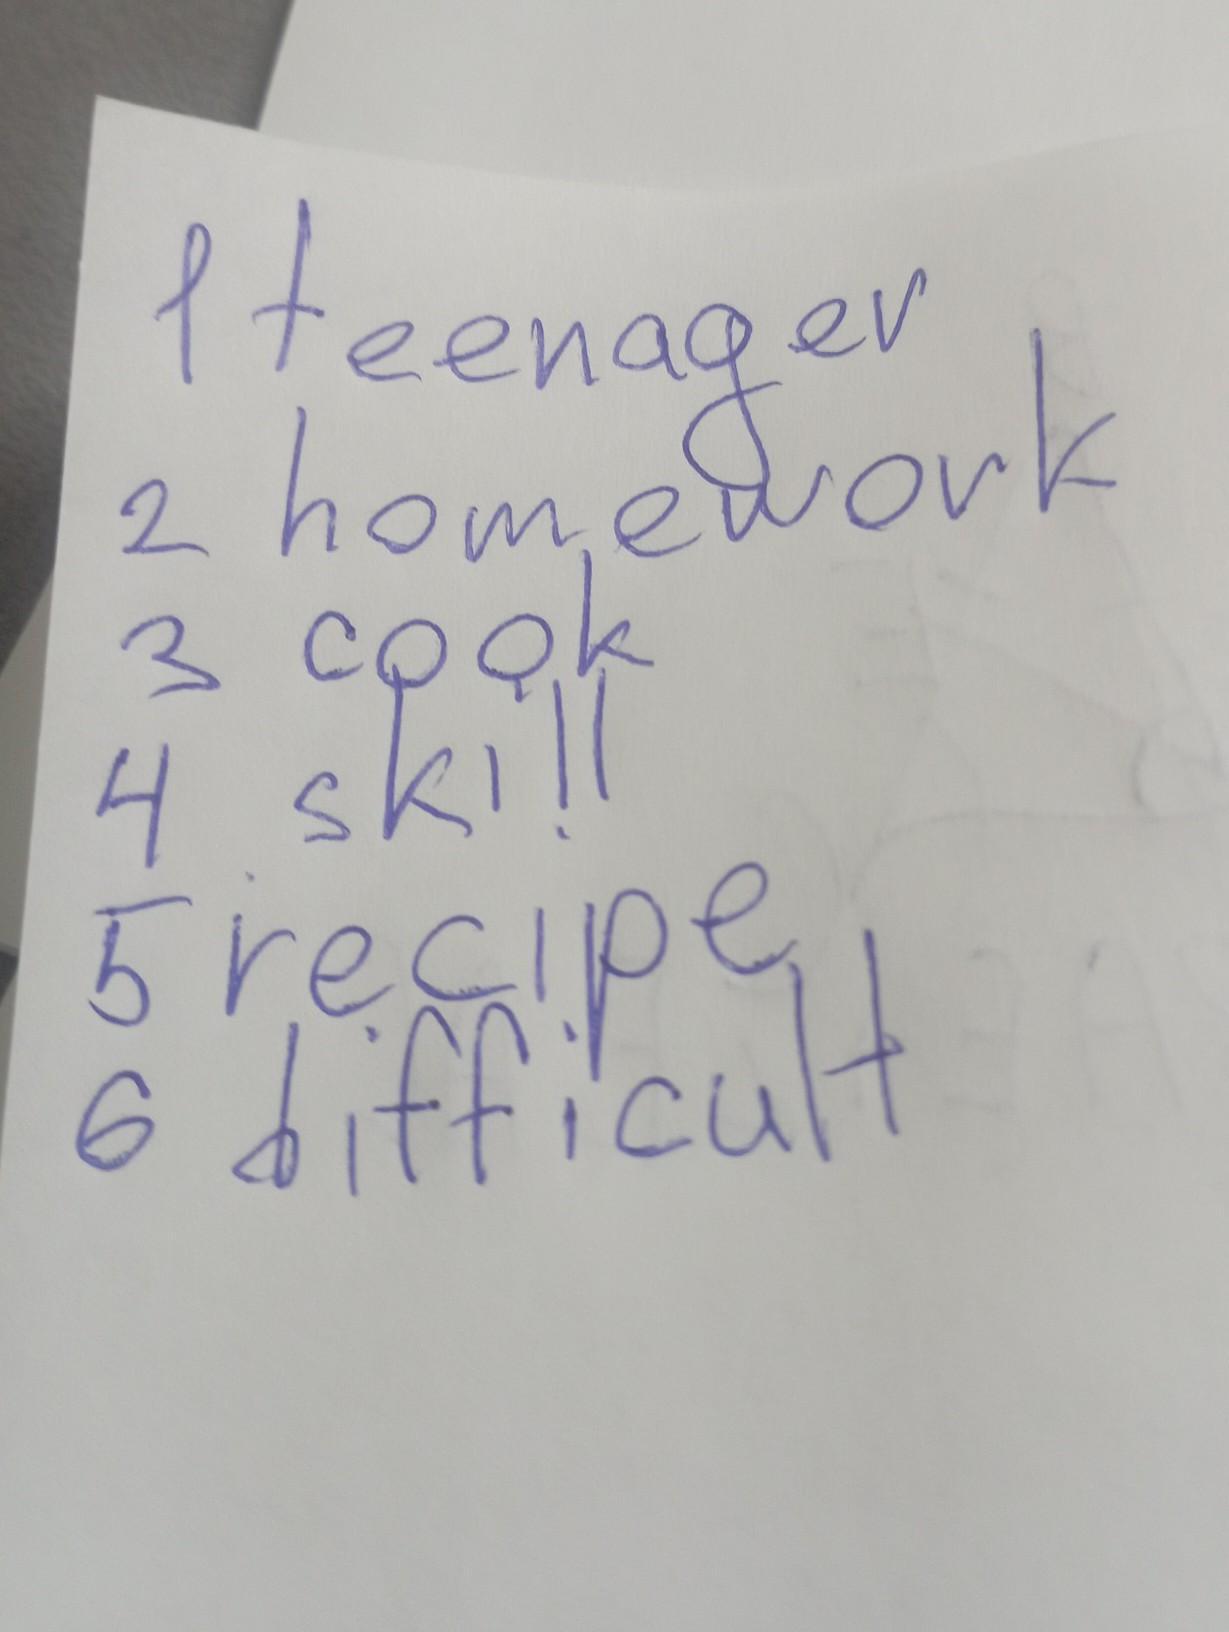 1 teenager
2 homework
3 cook
4 skill
5 recipe
6 difficult